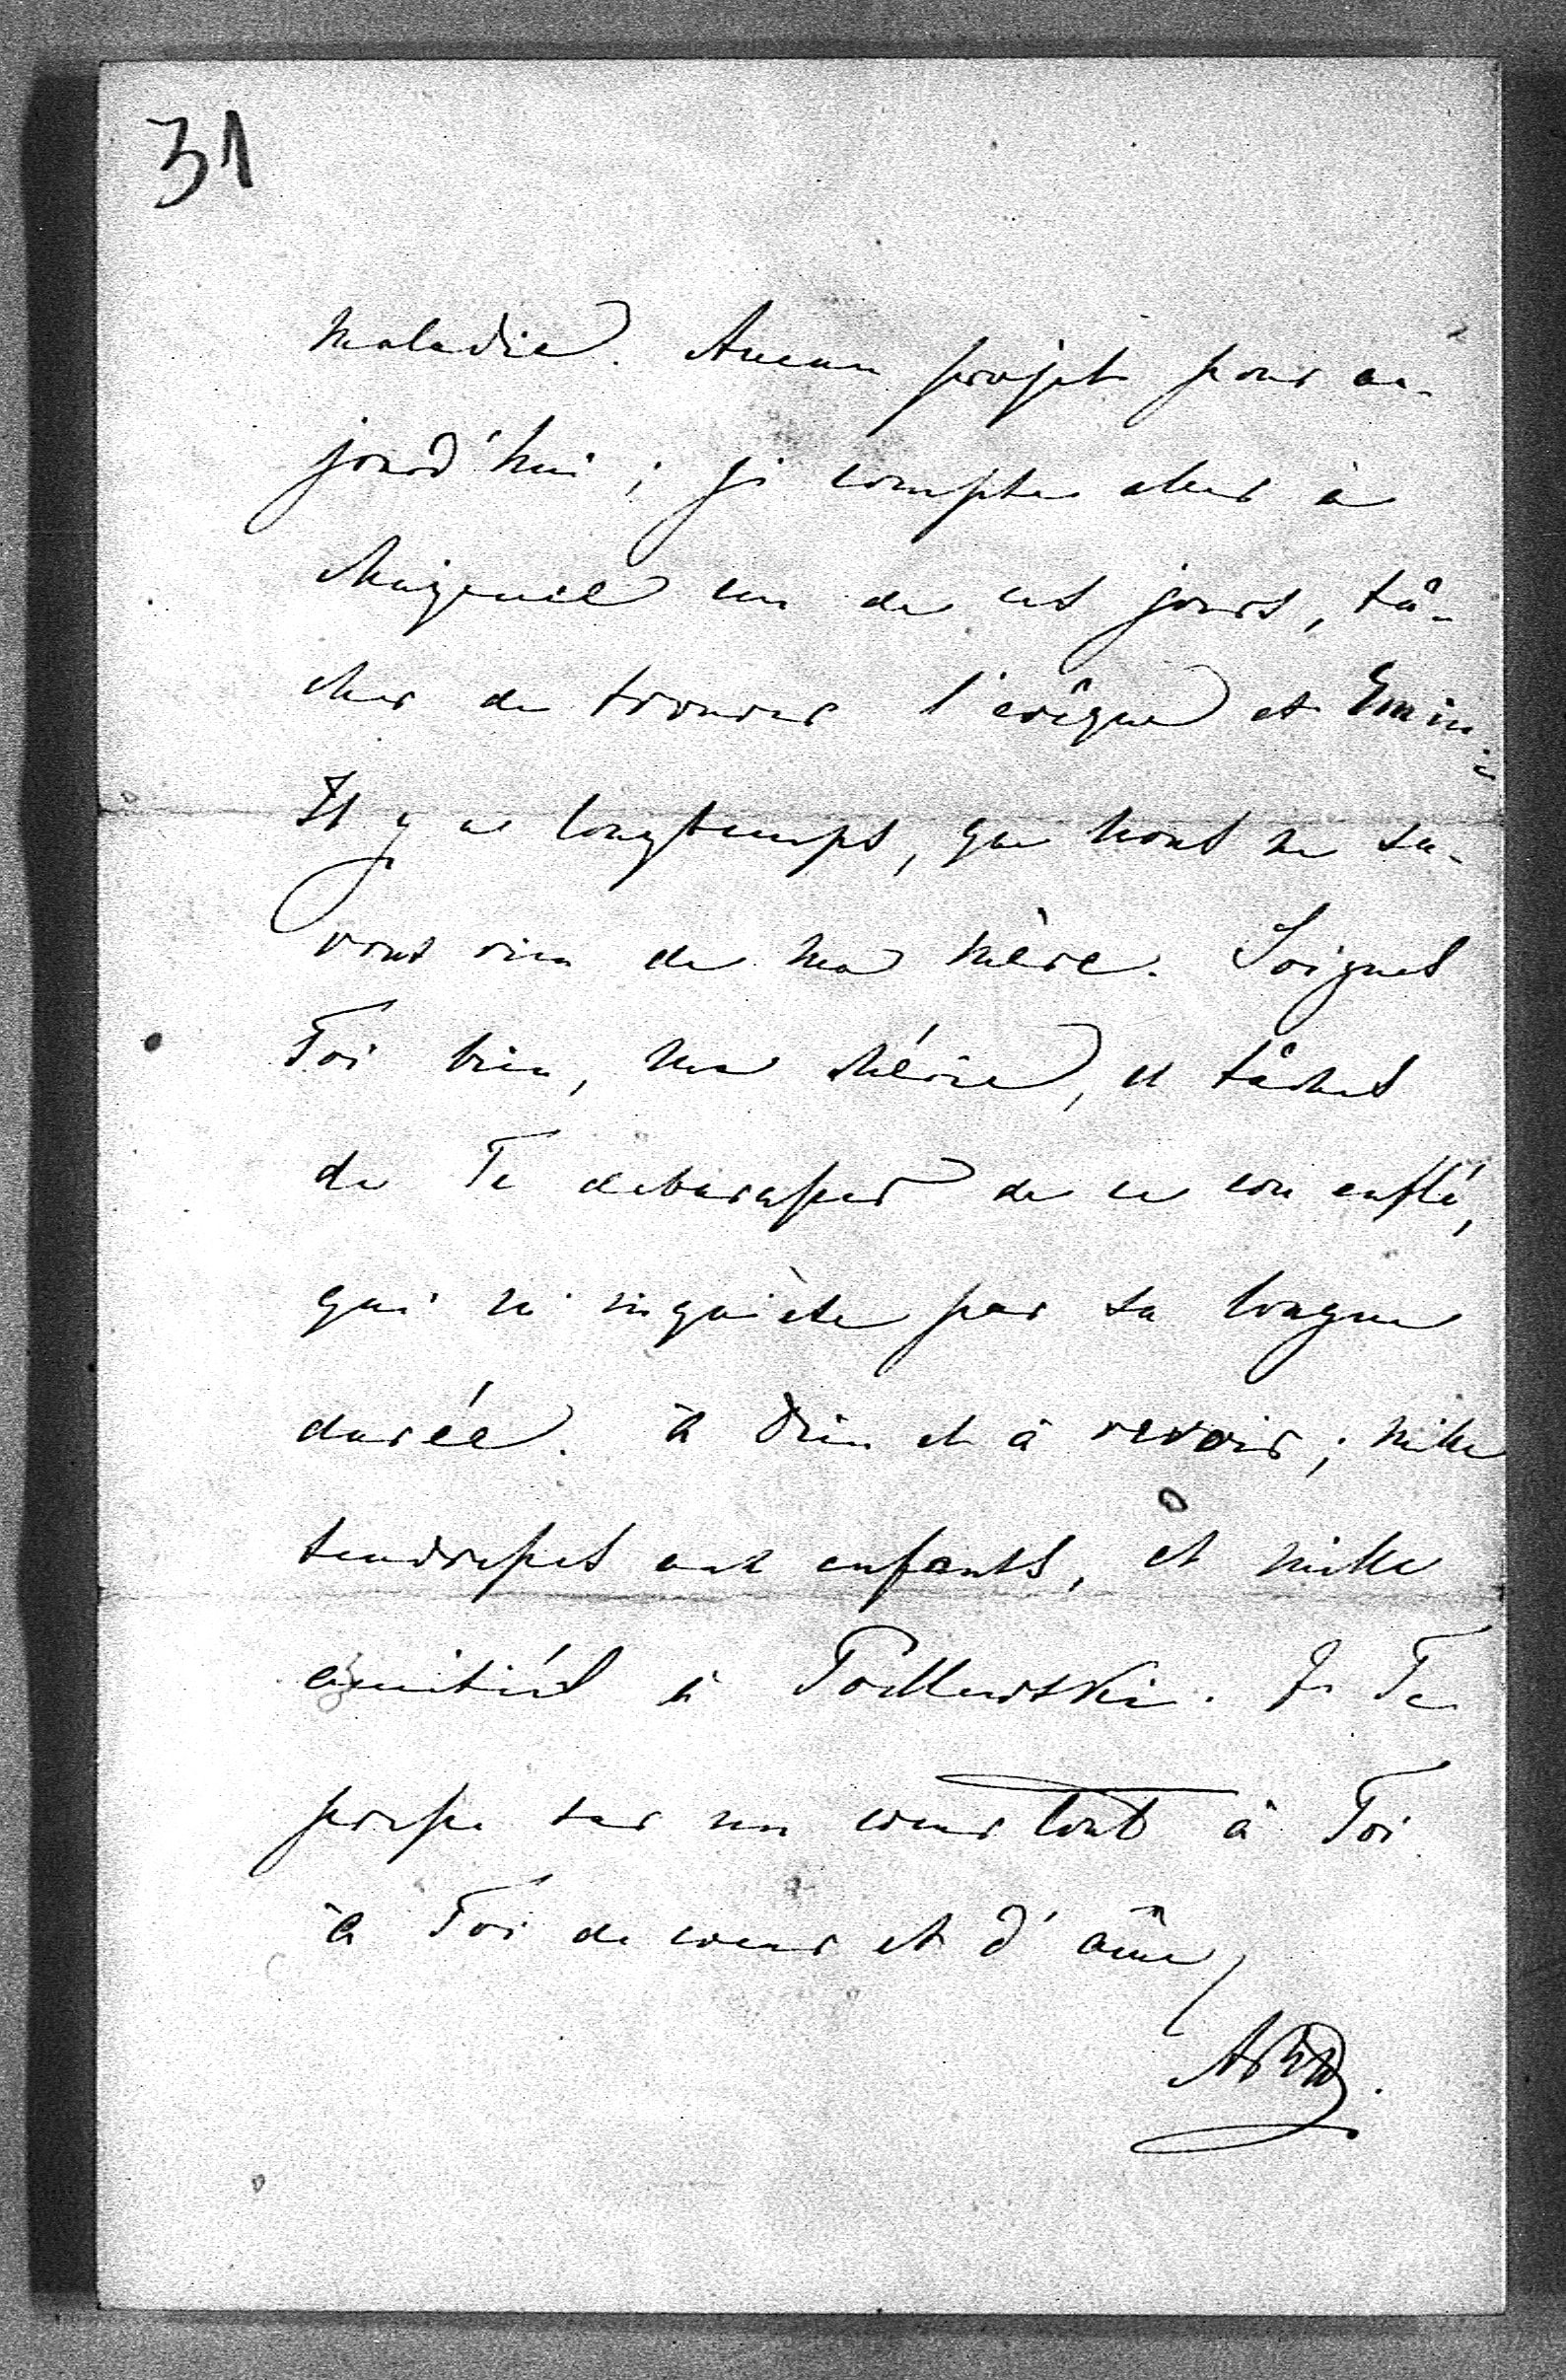 31
maladie. Aucun projet pour au-
jourd'hui; je compte aller à
un de ces jours, tâ-
cher de trouver l'évêque et Emin:
Il y a longtemps, que nous ne sa-
vons rien de ma mère. Soignes
Toi bien, ma chérie, et tâches
de Te debarasser de ce cou enflé,
qui m'inquiète par sa longue
durée. à Dieu et à revoir; mille
tendresses aux enfants, et mille
amitiés à Podlewski. Je Te
presse sur mon coeur tout à Toi
à Toi de coeur et d'âme